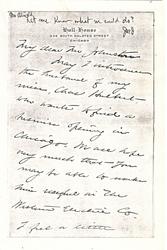 Let me know what we could do?
Hull-House
335 South Halsted Street
Chicago
My dear Mr.
May I introduce
the husband of my
niece, Chas
who wants to find a
business opening in
Chicago. We all hope
very much that you
may be able to make
him useful in the
Western Electric Co.
I feel a little